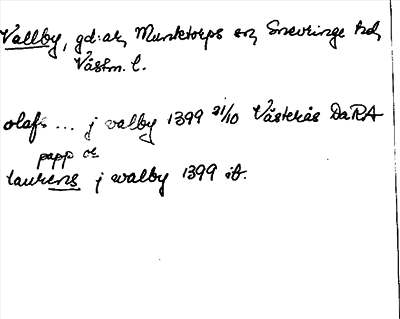 Vallby, gd:ar, Munktorps sn, Snevringe hd,
Västm. l.
olafs ... j valby 1399 21/10 Västerås DaRA
papp or
laurens j walby 1399 ib.